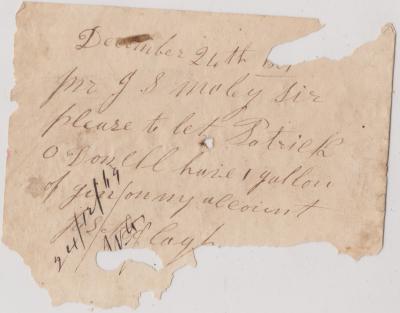 December 24th
Mr J S Moby Sir
please to let Patrick
O Donell have 1 gallon
of gin on my account
24/12/69